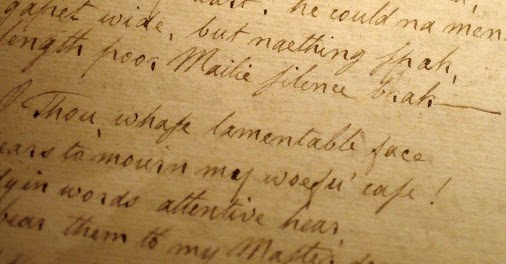 he could na men
gapet wide, but naething spak,
length poor Mailie silence brak—
O Thou whase lamentable face
ears to mourn my woefu' case!
yin words attentive hear
bear them to my Master